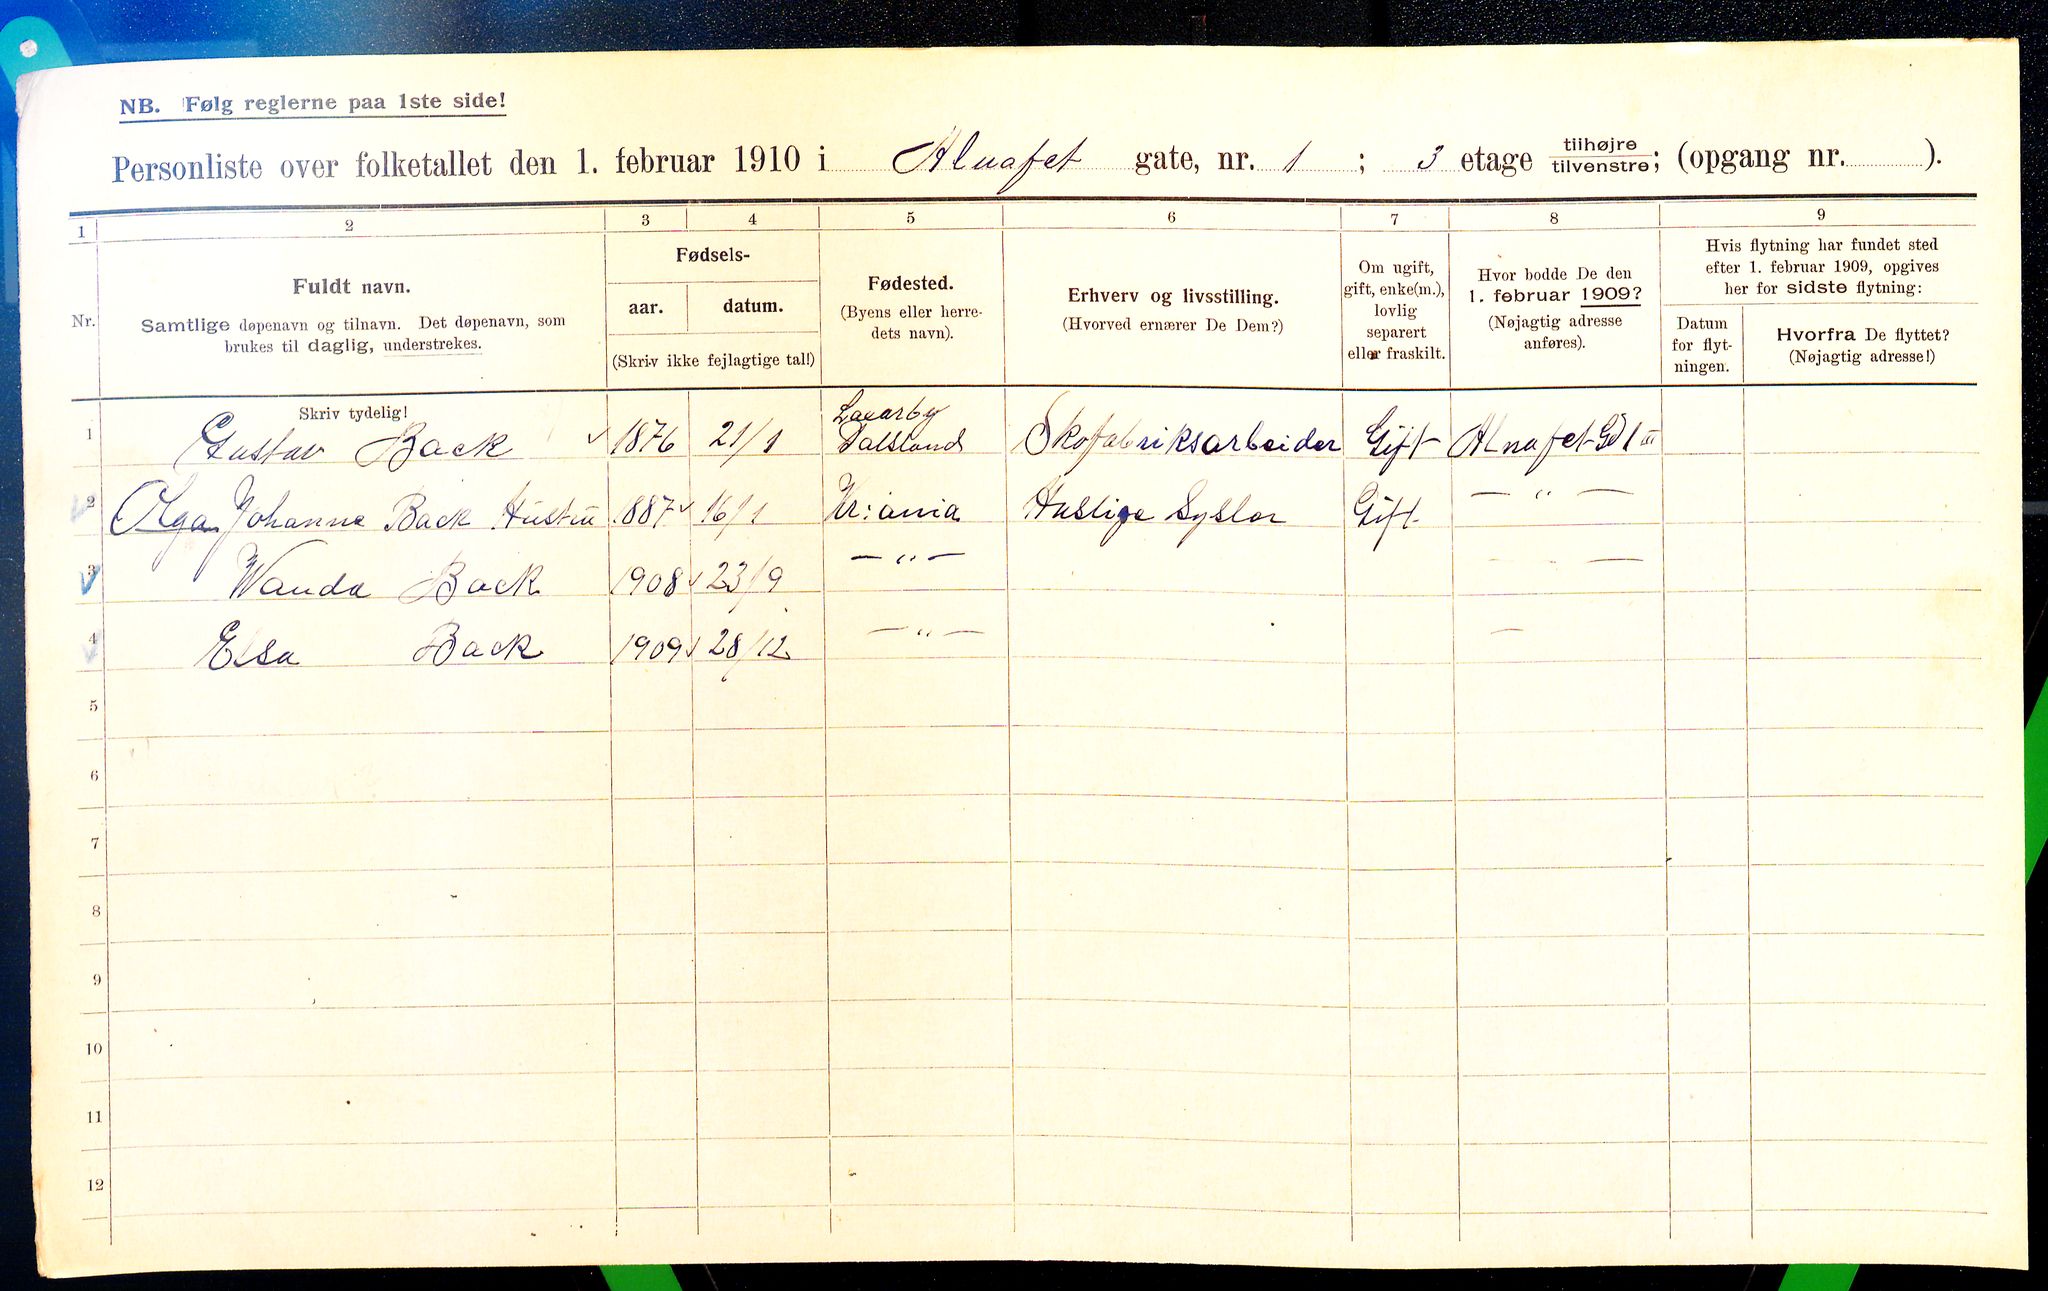 NB. Følg reglerne paa 1ste side!
Personliste over folketallet den 1. februar 1910 i Alnafet gate, nr. 1 ; 3 etage tilhøjre tilvenstre; (opgang nr. ).
1 2 3 4 5 6 7 8 9
Nr.
Fuldt navn.
Samtlige døpenavn og tilnavn. Det døpenavn, som
brukes til daglig, understrekes.
Fødsels-
aar. datum.
(Skriv ikke fejlagtige tal!)
Fødested.
(Byens eller herre-
dets navn).
Erhverv og livsstilling.
(Hvorved ernærer De Dem?)
Om ugift,
gift, enke(m.),
lovlig
separert
eller fraskilt.
Hvor bodde De den
1. februar 1909?
(Nøjagtig adresse
anføres).
Hvis flytning har fundet sted
efter 1. februar 1909, opgives
her for sidste flytning:
Datum
for flyt-
ningen.
Hvorfra De flyttet?
(Nøjagtig adresse!)
Skriv tydelig!
1 Gustav Back 1876 21/1 Laxarby Dalsland Skofabriksarbeider Gift Alnafet Gd 1 III
2 Olga Johanne Back Hustru 1887 16/1 Kr:ania Huslige Sysler Gift — " —
3 Wanda Back 1908 23/9 — " — — —
4 Elsa Back 1909 28/12 — " — —
5
6
7
8
9
10
11
12